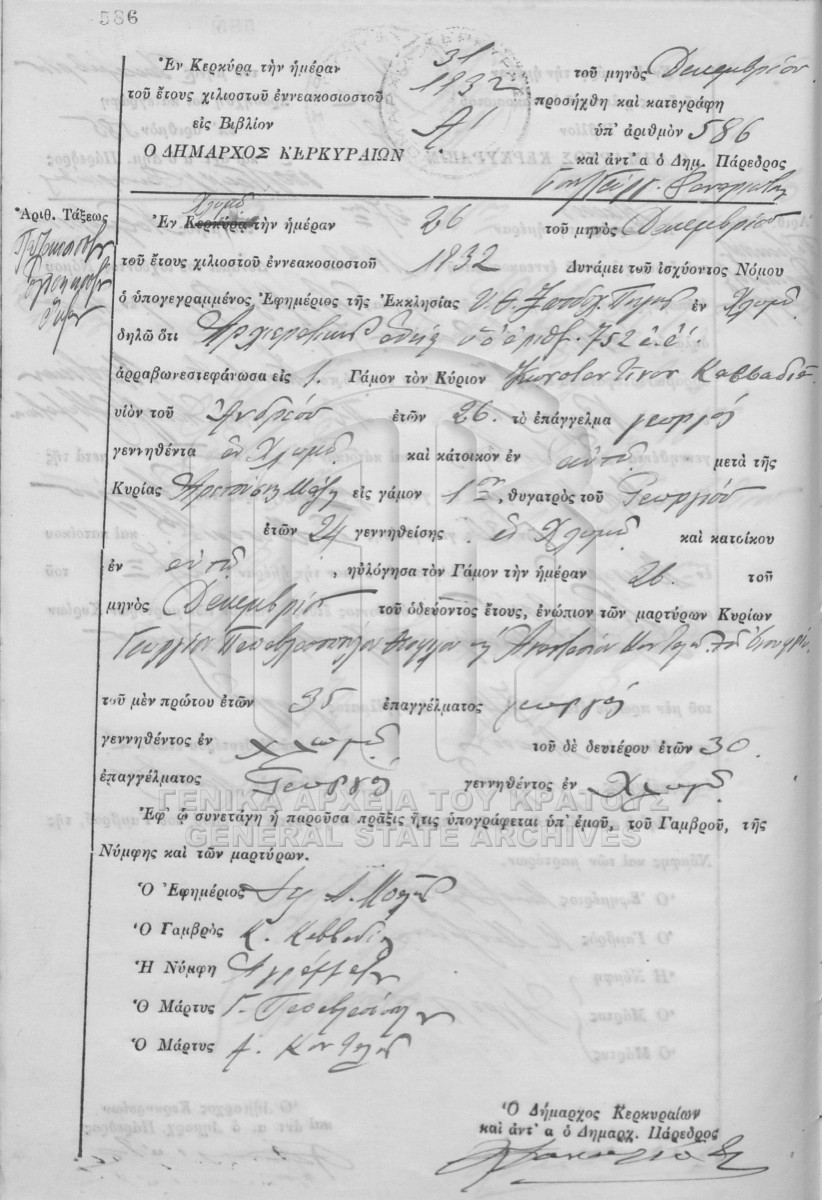 586
Ἐν Κερκύρᾳ τὴν ἡμέραν 31 τοῦ μηνὸς Δεκεμβρίου
τοῦ ἔτους χιλιοστοῦ ἐννεακοσιοστοῦ 1932 προσήχθη καὶ κατεγράφη
εἰς Βιβλίον Α' ὑπ' ἀριθμὸν 586
Ο ΔΗΜΑΡΧΟΣ ΚΕΡΚΥΡΑΙΩΝ καὶ ἀντ' α ὁ Δημ. Πάρεδρος
Ἀριθ. Τάξεως
Χλομῷ
Ἐν Κερκύρᾳ τὴν ἡμέραν 26 τοῦ μηνὸς Δεκεμβρίου
τοῦ ἔτους χιλιοστοῦ ἐννεακοσιοστοῦ 1932 Δυνάμει τοῦ ἰσχύοντος Νόμου
ὁ ὑπογεγραμμένος Ἐφημέριος τῆς Ἐκκλησίας Υ. Θ. Ζωοδχ. Πηγῆς ἐν Χλομῷ
δηλῶ ὅτι ἀδείᾳ ὑπ' ἀριθ. 752 ἐ. ἔ.
ἀρραβωνεστεφάνωσα εἰς 1. Γάμον τὸν Κύριον Κωνσταντῖνον Καββαδία
υἱὸν τοῦ Ἀνδρέου ἐτῶν 26. τὸ ἐπάγγελμα γεωργός
γεννηθέντα ἐν Χλομῷ καὶ κάτοικον ἐν αὐτῷ μετὰ τῆς
Κυρίας εἰς γάμον 1ον, θυγατρὸς τοῦ Γεωργίου
ἐτῶν 24 γεννηθείσης ἐν Χλομῷ καὶ κατοίκου
ἐν αὐτῷ, ηὐλόγησα τὸν Γάμον τὴν ἡμέραν 26. τοῦ
μηνὸς Δεκεμβρίου τοῦ ὁδεύοντος ἔτους, ἐνώπιον τῶν μαρτύρων Κυρίων
Γεωργίου
τοῦ μὲν πρώτου ἐτῶν 35 ἐπαγγέλματος γεωργός
γεννηθέντος ἐν Χλωμῷ τοῦ δὲ δευτέρου ἐτῶν 30.
ἐπαγγέλματος Γεωργός γεννηθέντος ἐν Χλωμῷ.
ΓΕΝΙΚΑ ΑΡΧΕΙΑ ΤΟΥ ΚΡΑΤΟΥΣ
Ἐφ' ᾧ συνετάγη ἡ παροῦσα πρᾶξις ἥτις ὑπογράφεται ὑπ' ἐμοῦ, τοῦ Γαμβροῦ, τῆς
GENERAL STATE ARCHIVES
Νύμφης καὶ τῶν μαρτύρων.
Ὁ Ἐφημέριος
Ὁ Γαμβρὸς Κ. Καββαδίας
Ἡ Νύμφη
Ὁ Μάρτυς Γ.
Ὁ Μάρτυς Α.
Ὁ Δήμαρχος Κερκυραίων
καὶ ἀντ' α ὁ Δημαρχ. Πάρεδρος